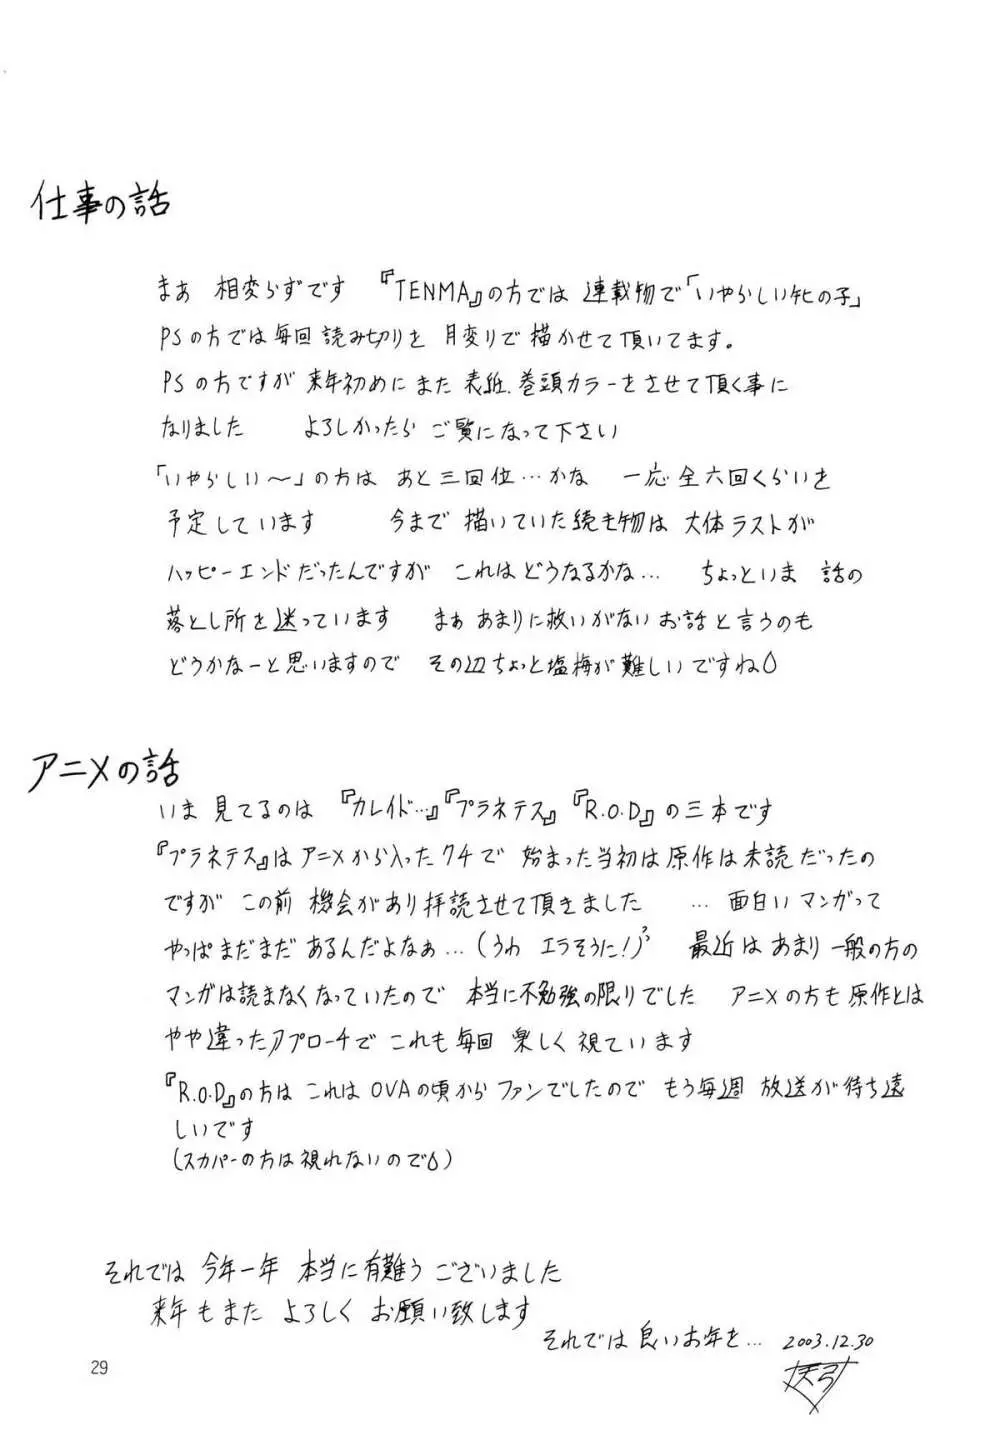 仕事の話
まあ 相変らずです 『TENMA』の方では 連載物で「いやらしい牝の子」
PSの方では毎回読み切りを 月変りで描かせて頂いてます。
PSの方ですが来年初めにまた 表紙.巻頭カラーをさせて頂く事に
なりました よろしかったら ご覧になって下さい
「いやらしい〜」の方は あと三回位…かな 一応全六回くらいを
予定しています 今まで描いていた続き物は 大体ラストが
ハッピーエンドだったんですが これはどうなるかな… ちょっといま 話の
落とし所を迷っています まぁ あまりに救いがないお話と言うのも
どうかなーと思いますので その辺ちょっと塩梅が難しいですね
アニメの話
いま 見てるのは 『カレイド…』『プラネテス』『R.O.D』の三本です
『プラネテス』はアニメから入ったクチで 始まった当初は原作は未読だったの
ですが この前 機会があり拝読させて頂きました … 面白いマンガって
やっぱまだまだ あるんだよなぁ…(うわ エラそうに!) 最近は あまり 一般の方の
マンガは読まなくなっていたので 本当に不勉強の限りでした アニメの方も原作とは
やや違ったアプローチで これも毎回 楽しく視ています
『R.O.D』の方は これは OVAの頃から ファンでしたので もう毎週 放送が待ち遠
しいです
(スカパーの方は視れないので)
それでは 今年一年 本当に有難うございました
来年もまた よろしく お願い致します
それでは良いお年を… 2003.12.30
29